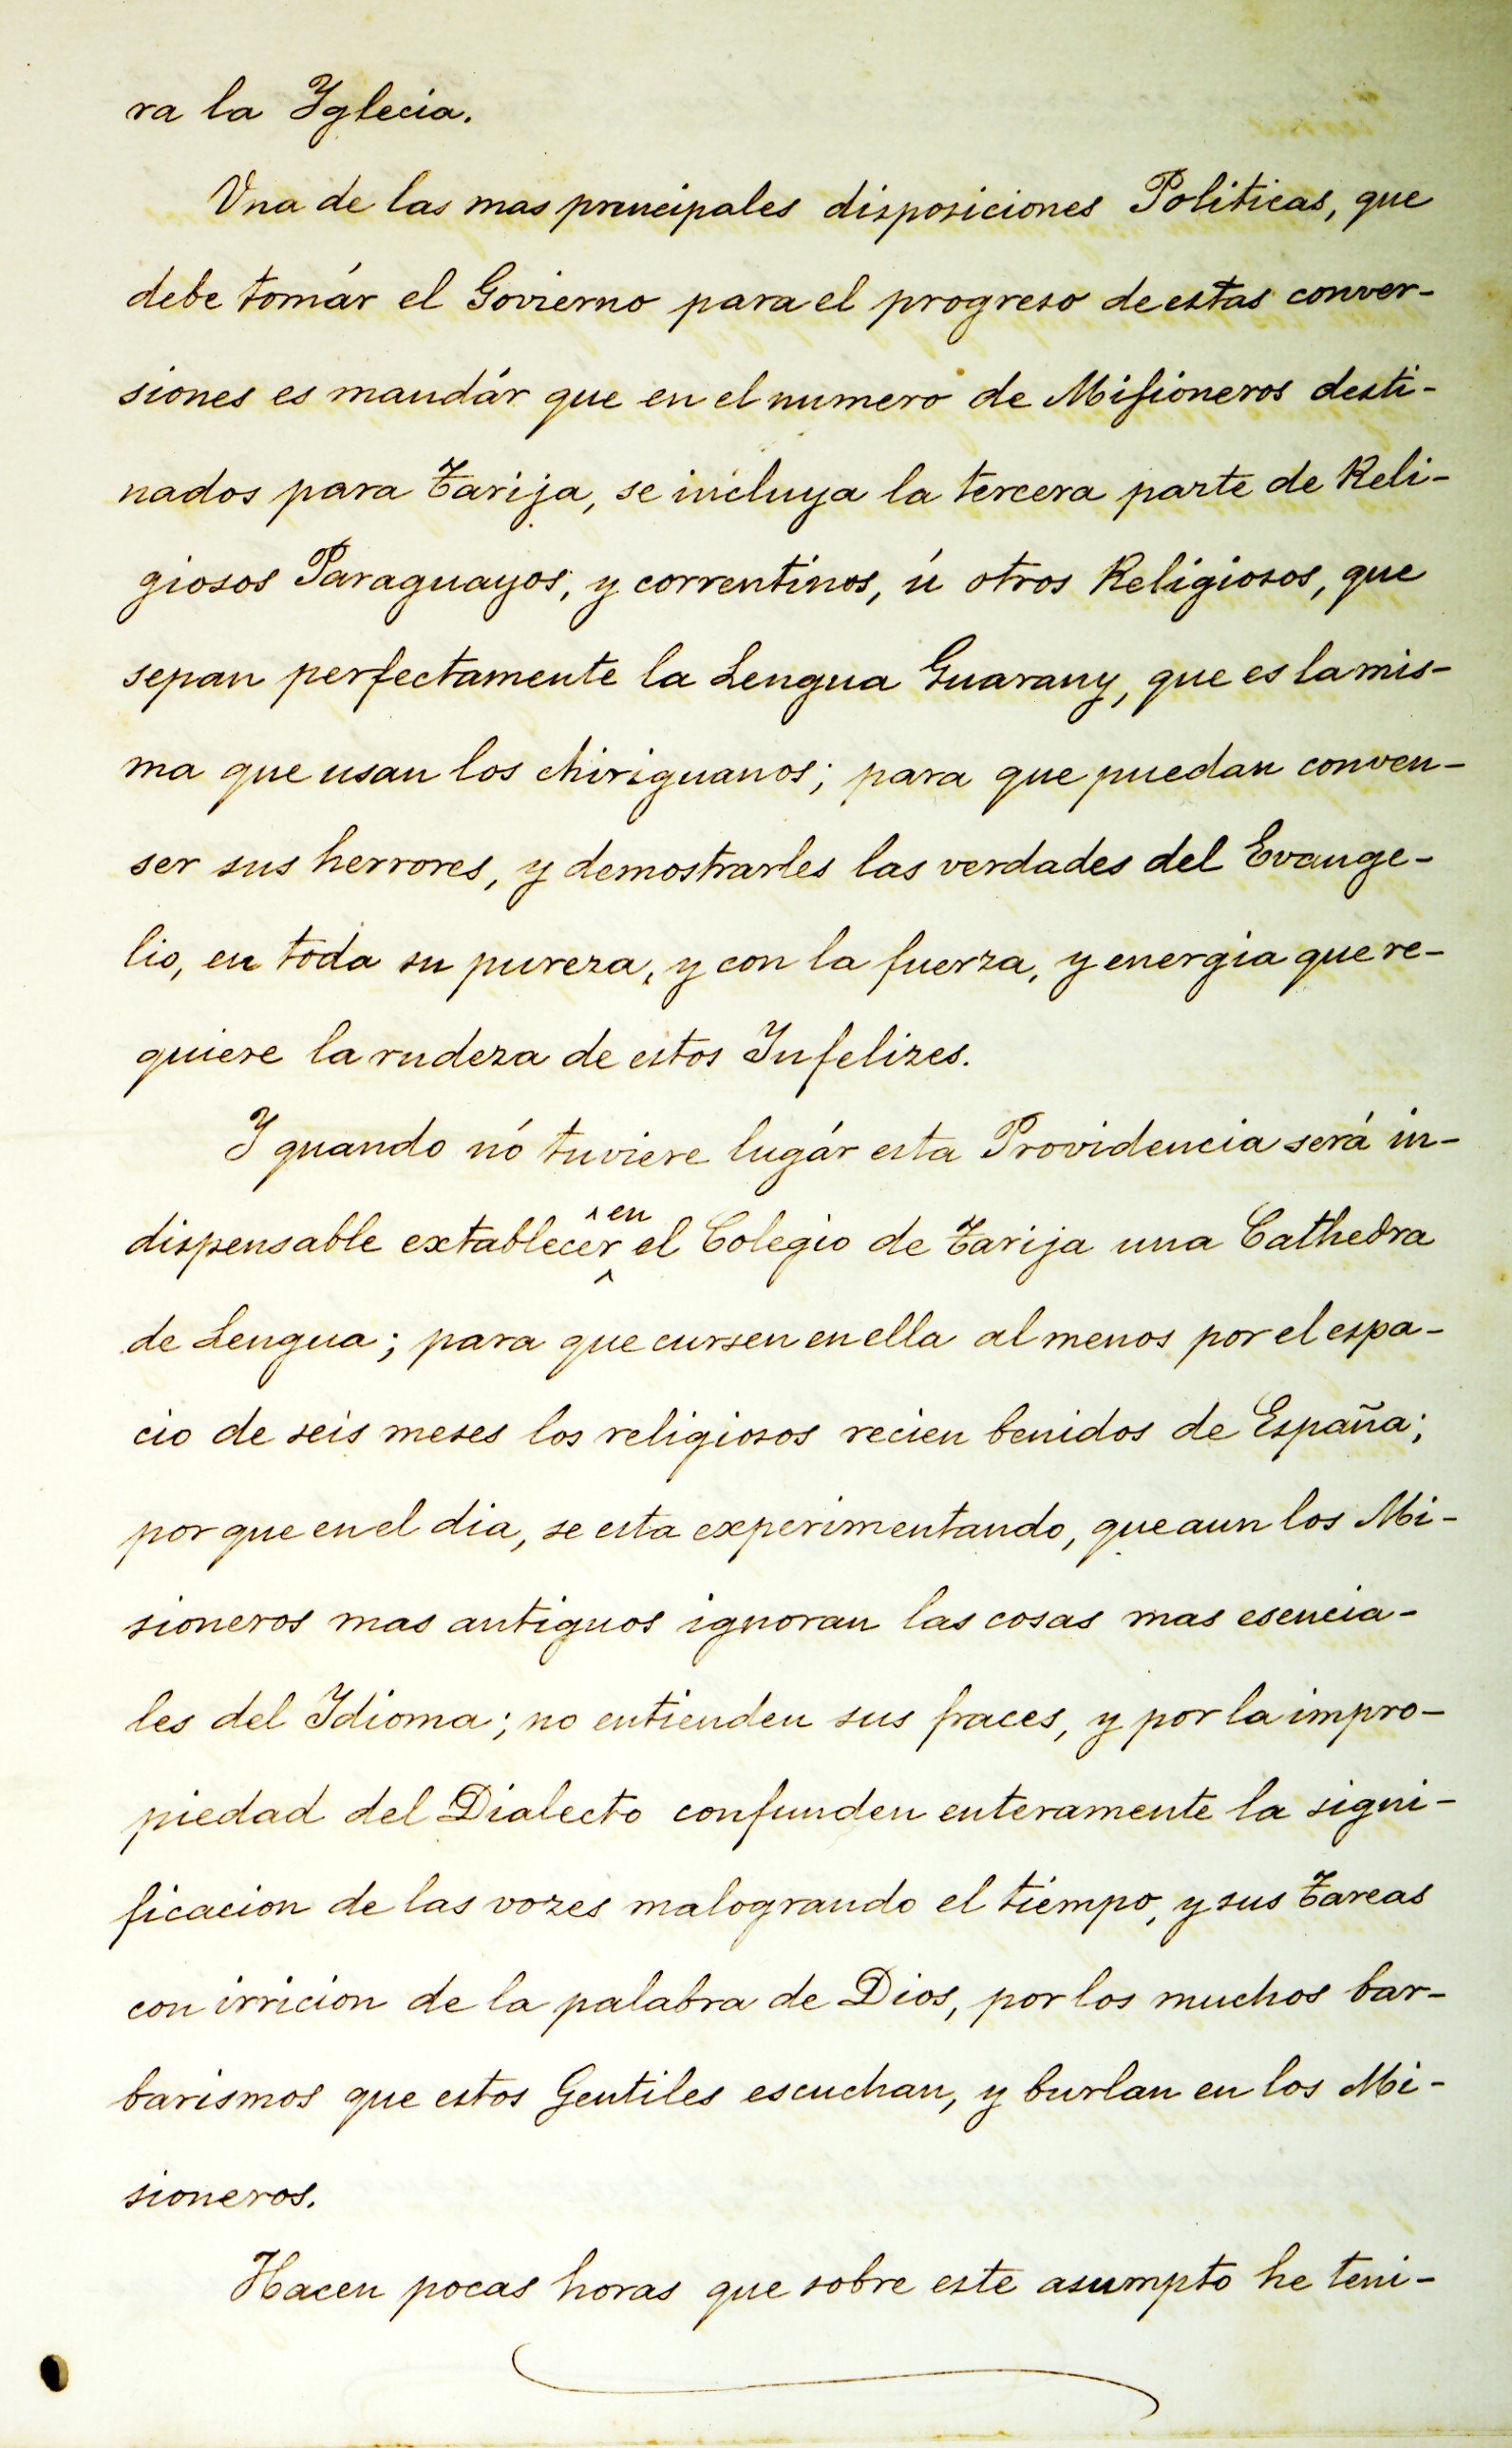 ra la Yglecia.
Vna de las mas principales disposiciones Politicas, que
debe tomár el Govierno para el progreso de estas conver-
siones es mandár que en el numero de Misioneros desti-
nados para Tarija, se incluya la tercera parte de Reli-
giosos Paraguayos, y correntinos, ú otros Religiosos, que
sepan perfectamente la Lengua Guarany, que es la mis-
ma que usan los chiriguanos; para que puedan conven-
ser sus herrores, y demostrarles las verdades del Evange-
lio, en toda su pureza, y con la fuerza, y energia que re-
quiere la rudeza de estos Infelizes.
Y quando nó tuviere lugár esta Providencia será in-
dispensable extablecer en el Colegio de Tarija una Cathedra
de Lengua; para que cursen en ella al menos por el espa-
cio de seis meses los religiosos recien benidos de España;
por que en el dia, se esta experimentando, que aun los Mi-
sioneros mas antiguos ignoran las cosas mas esencia-
les del Idioma; no entienden sus fraces, y por la impro-
piedad del Dialecto confunden enteramente la signi-
ficacion de las vozes malogrando el tiempo, y sus Tareas
con irricion de la palabra de Dios, por los muchos bar-
barismos que estos Gentiles escuchan, y burlan en los Mi-
sioneros.
Hacen pocas horas que sobre este asumpto he teni-